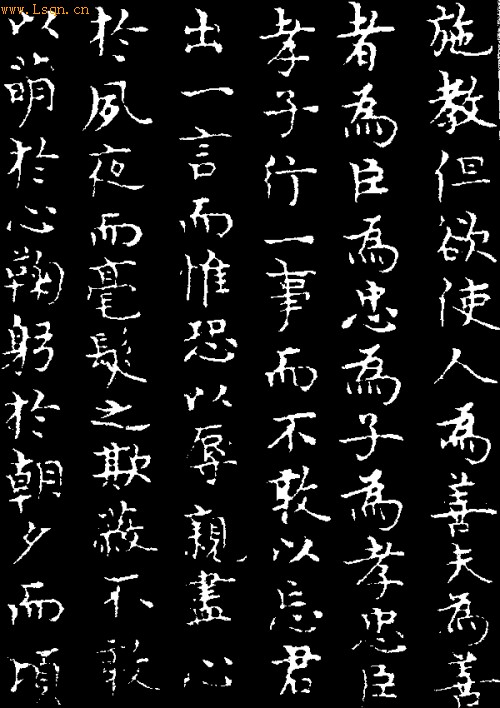 www.Lsqn.cn
施教但欲使人為善夫為善
者為臣為忠為子為孝忠臣
孝子行一事而不敢以忘君
出一言而惟恐以辱親盡心
於夙夜而毫髮之欺蔽不敢
以萌於心鞠躬於朝夕而頃